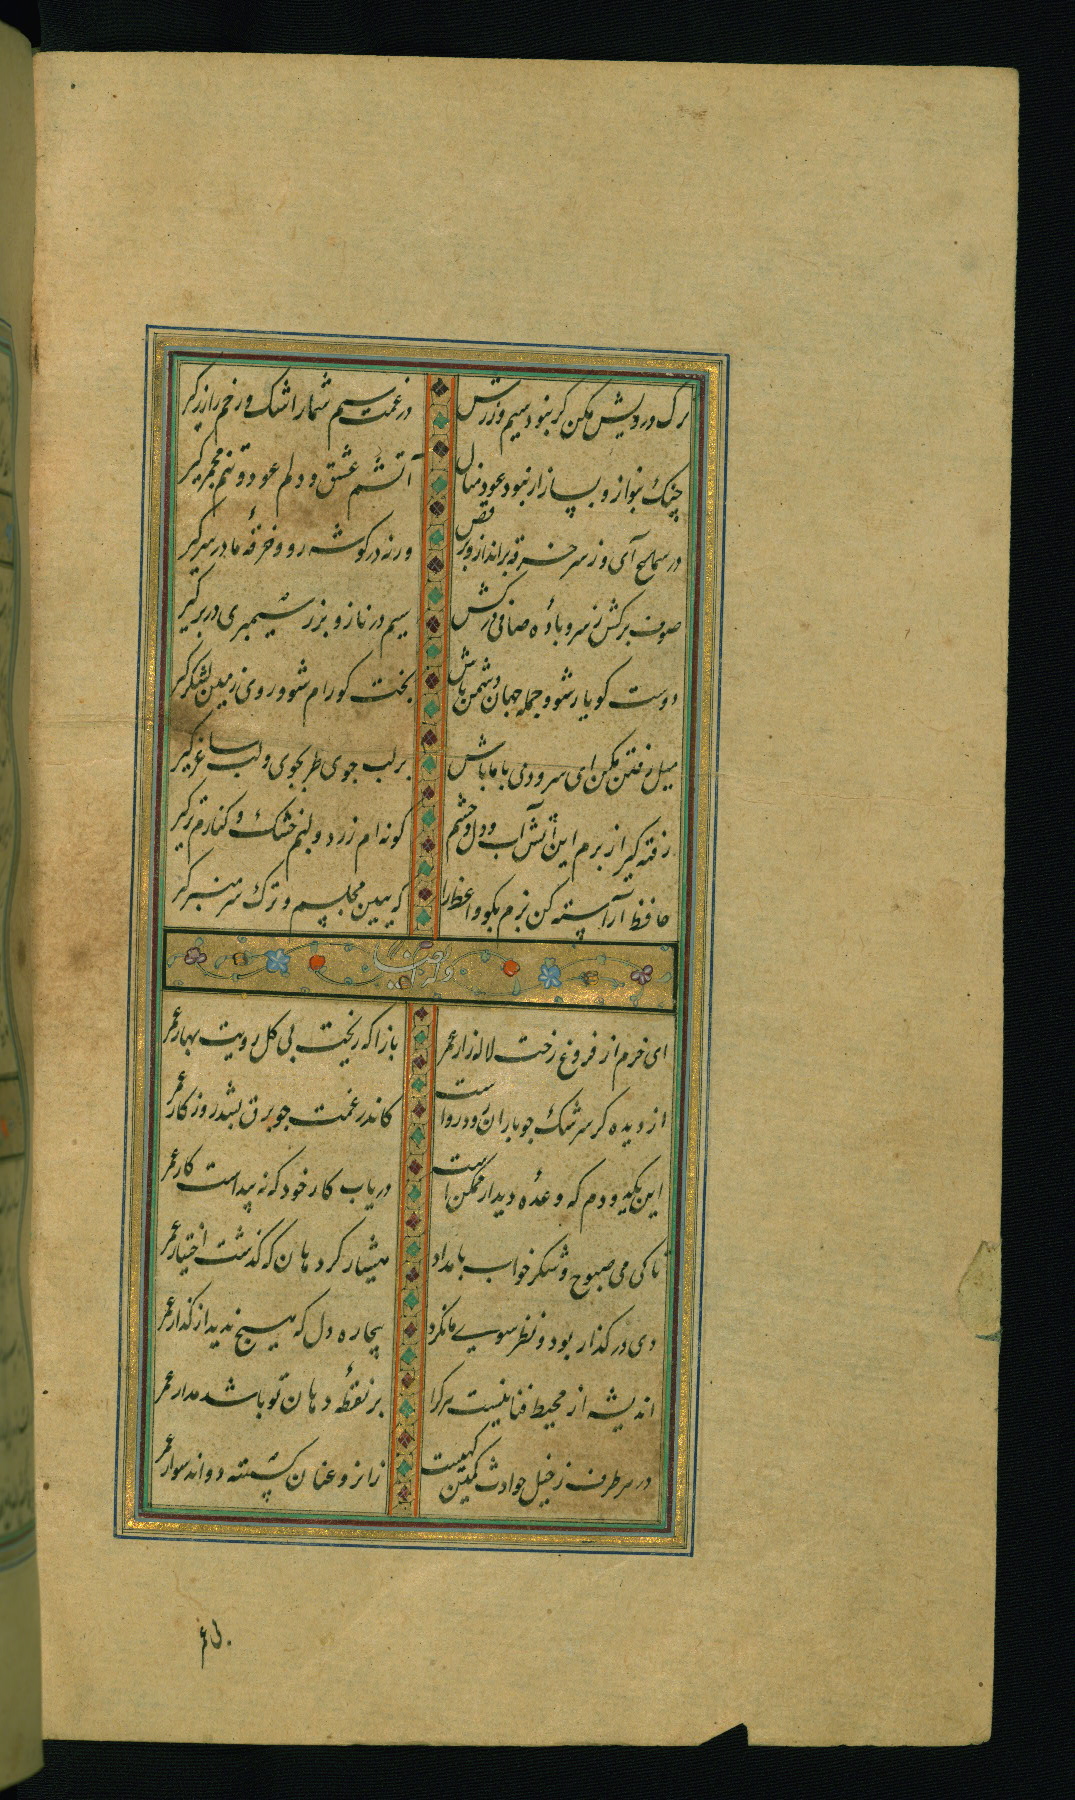 ترک درویش مکن کر نبود سیم و زرش
در غمت سیم شمار اشک و رخم را زر کیر
چنک بنواز و بساز ار نبود عود منال
آتشم عشق و دلم عود و تنم مجمر کیر
در سماع آی و ز سر خرقه برانداز و برقص
ورنه در کوشه رو و خرقهٔ ما در سر کیر
صوف برکش ز سر و بادهٔ صافی درکش
سیم در باز و بزر سیمبری در بر کیر
دوست کو یار شو و جمله جهان دشمن باش
بخت کو رام شو و روی زمین لشکر کیر
میل رفتن مکن ای سرو دمی با ما باش
بر لب جوی طرب جوی و لب ساغر کیر
رفته کیر از برم این آتش و آب دل و چشم
کونه‌ام زرد و لبم خشک و کنارم تر کیر
حافظ آراسته کن بزم بکو واعظ را
که ببین مجلسم و ترک سر منبر کیر
وله ایضا
ای خرم از فروغ رخت لاله‌زار عمر
بازا که ریخت بی کل رویت بهار عمر
از دیده کر سرشک چو باران رود رواست
کاندر غمت چو برق بشد روزکار عمر
این یکدو دم که وعدهٔ دیدار ممکن است
دریاب کار خود که نه پیداست کار عمر
تا کی می صبوح و شکر خواب بامداد
هشیار کرد هان که کذشت اختیار عمر
دی در کذار بود و نظر سوی ما نکرد
بیچاره دل که هیچ ندید از کذار عمر
اندیشه از محیط فنا نیست هر کرا
بر نقطهٔ دهان تو باشد مدار عمر
در هر طرف ز خیل حوادث کمین کهیست
زانرو عنان کسسته دواند سوار عمر